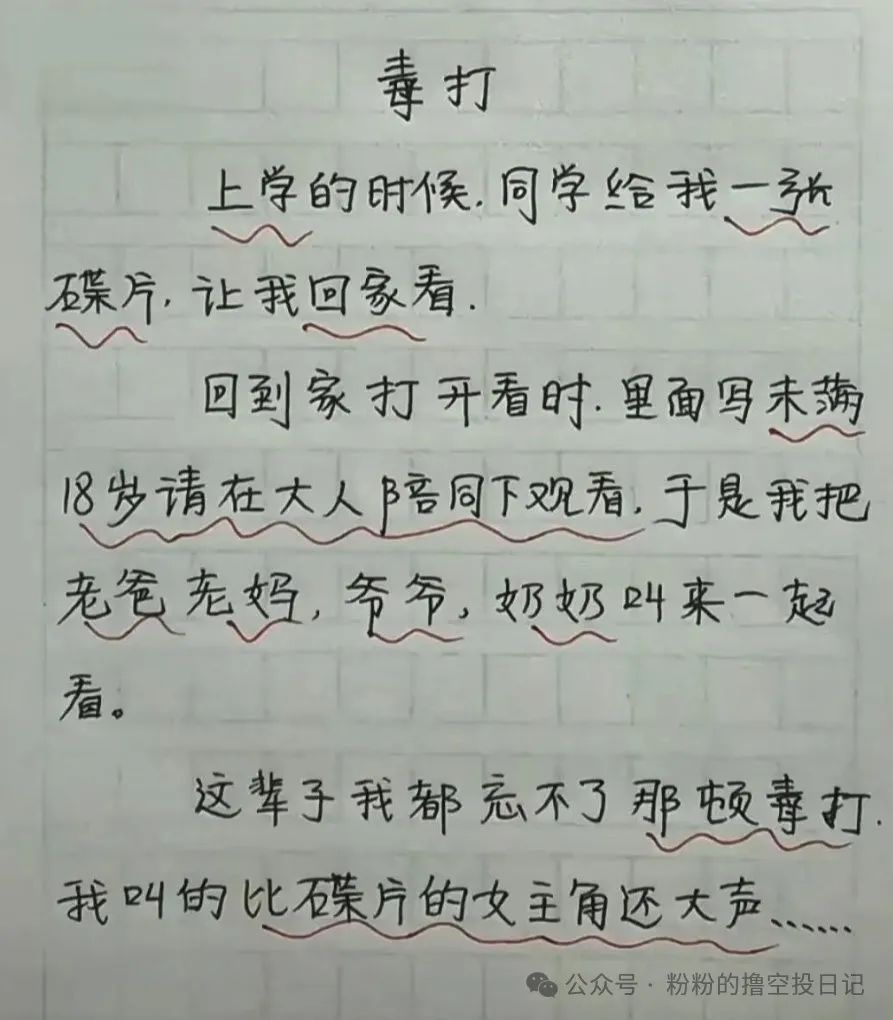 毒打
上学的时候.同学给我一张
碟片.让我回家看.
回到家打开看时.里面写未满
18岁请在大人陪同下观看,于是我把
老爸老妈,爷爷,奶奶叫来一起
看。
这辈子我都忘不了那顿毒打.
我叫的比碟片的女主角还大声......
公众号·粉粉的撸空投日记